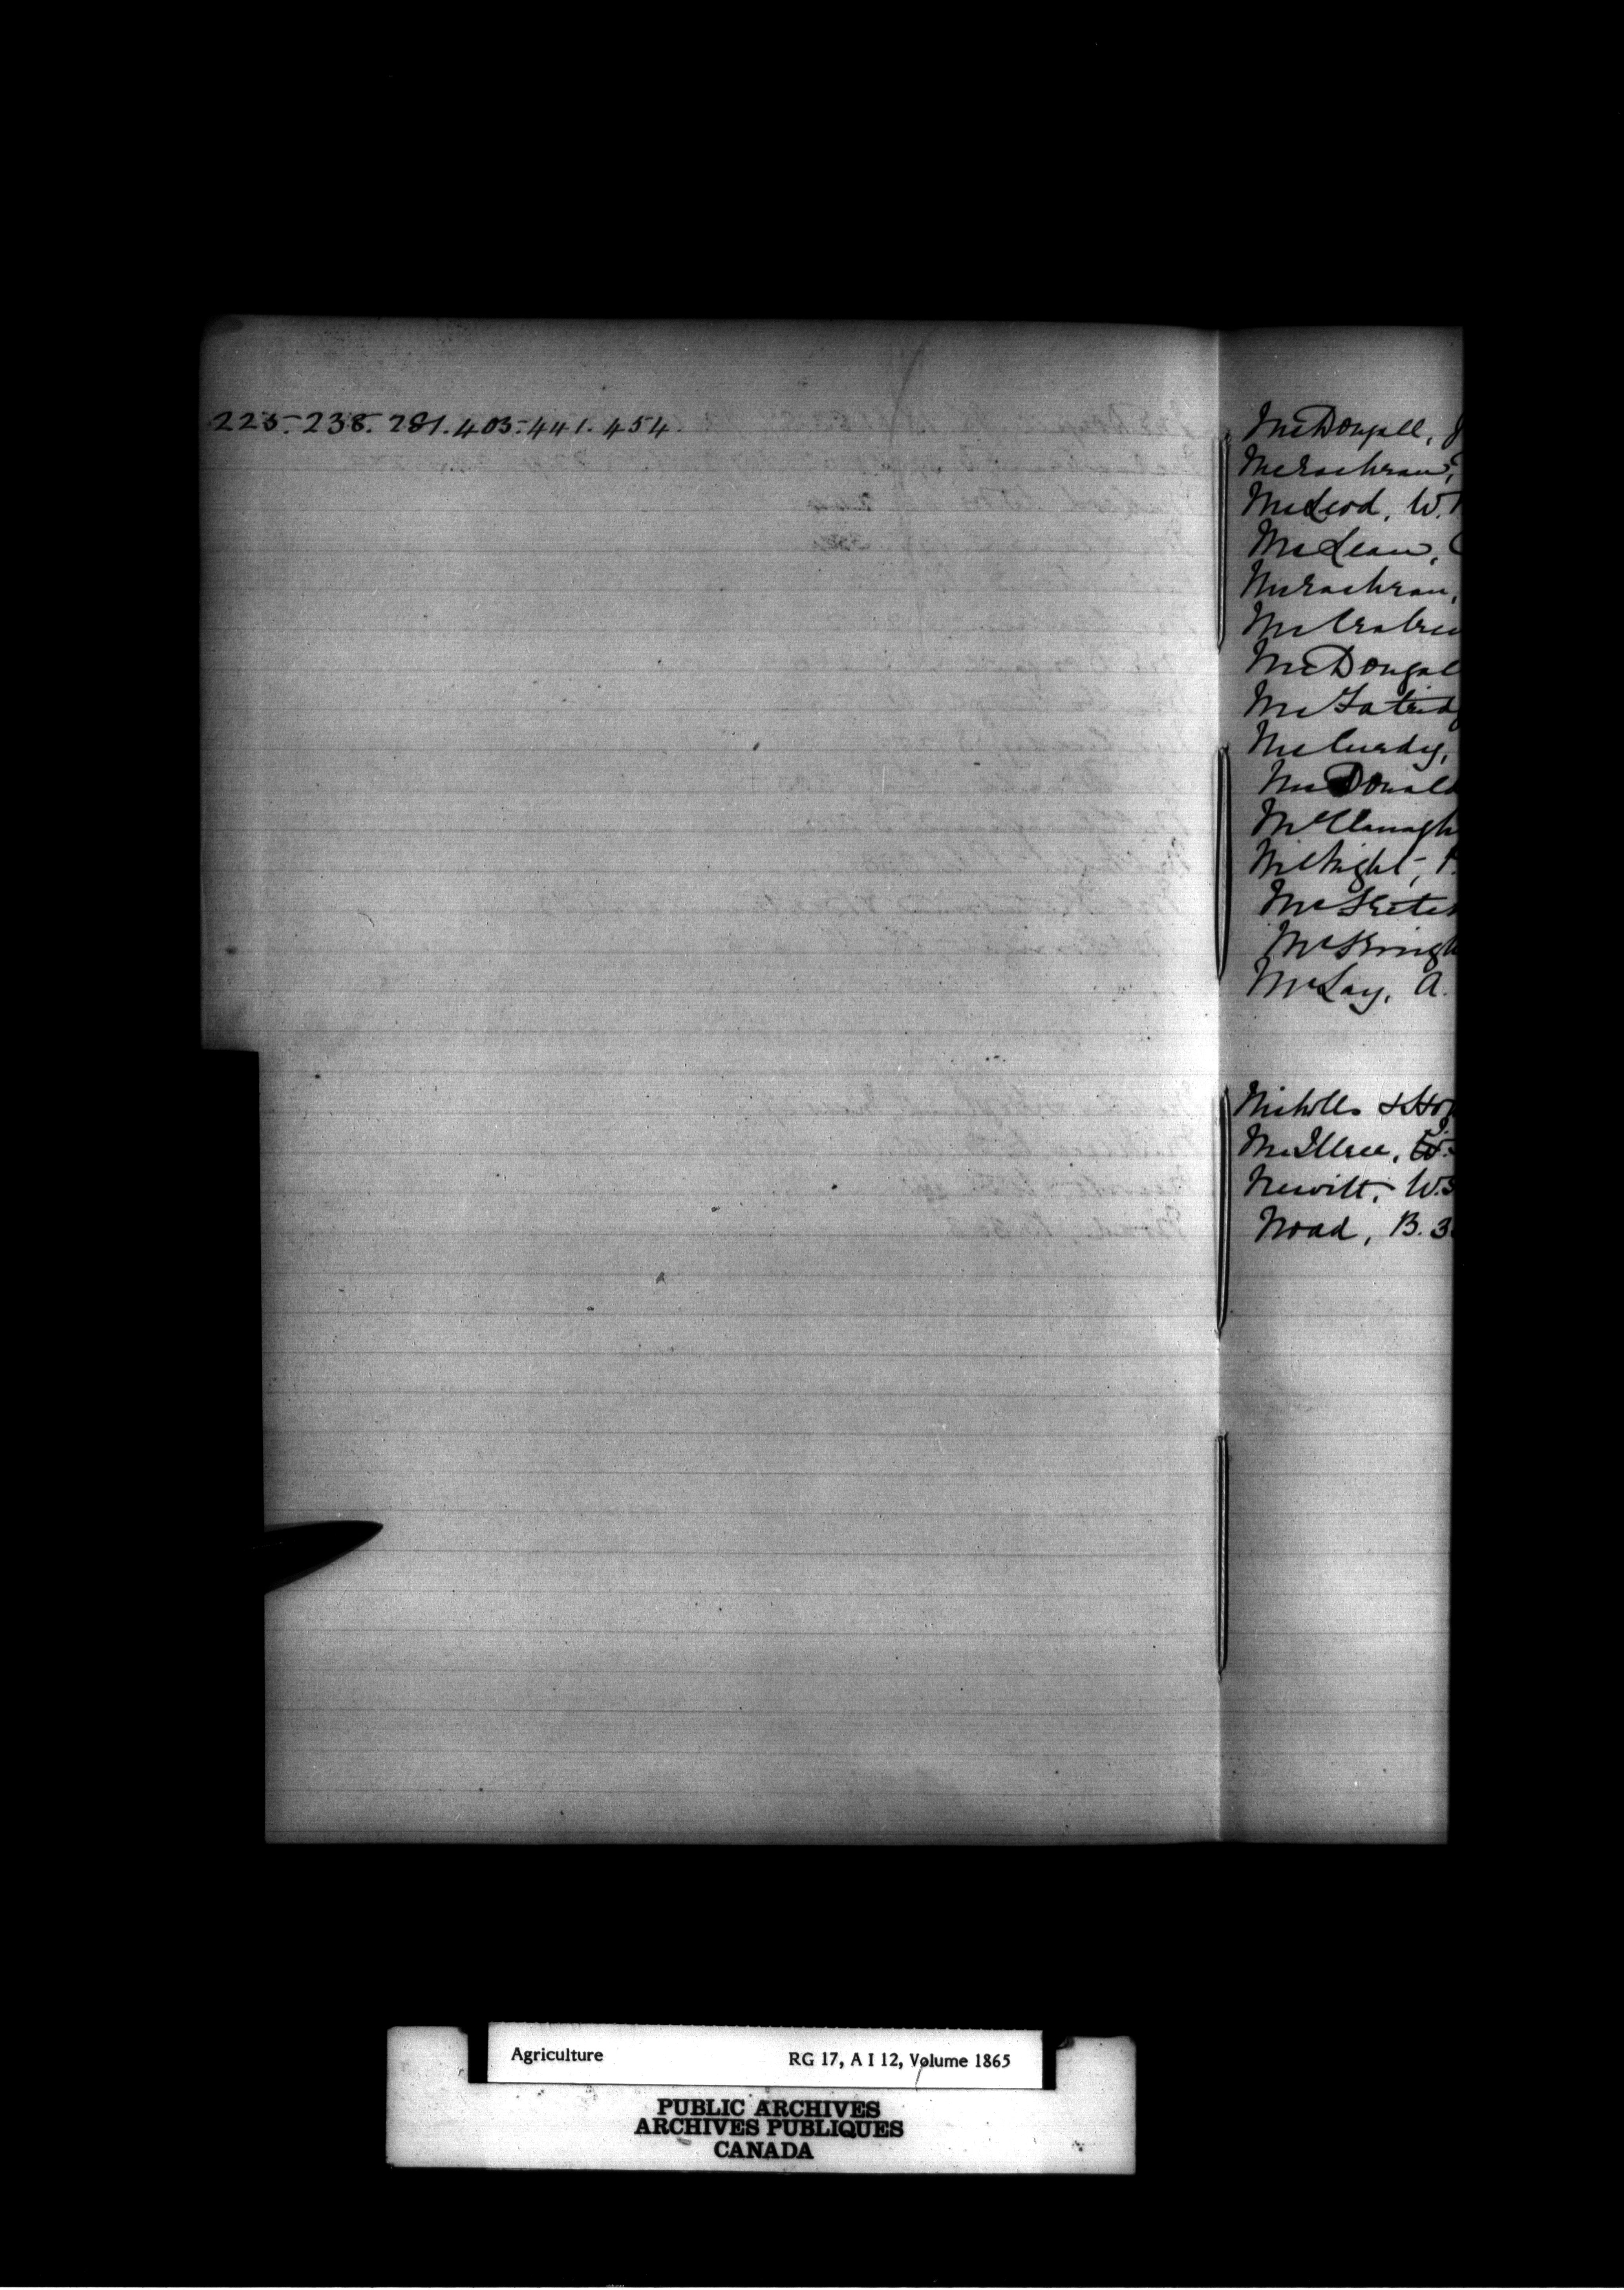 225-238.281.403-441.454.
McDougall, J
McEachran,
McLeod, W.
McLean,
McEachran,
McCrabree
McDougal
McCurdy,
McDonald
McClanagh
McNight,
McLay, A.
Nicholls & Ho
McIllree, J.
Newitt, W.
Noad, B. 3
Agriculture RG 17, A I 12, Volume 1865
PUBLIC ARCHIVES
ARCHIVES PUBLIQUES
CANADA